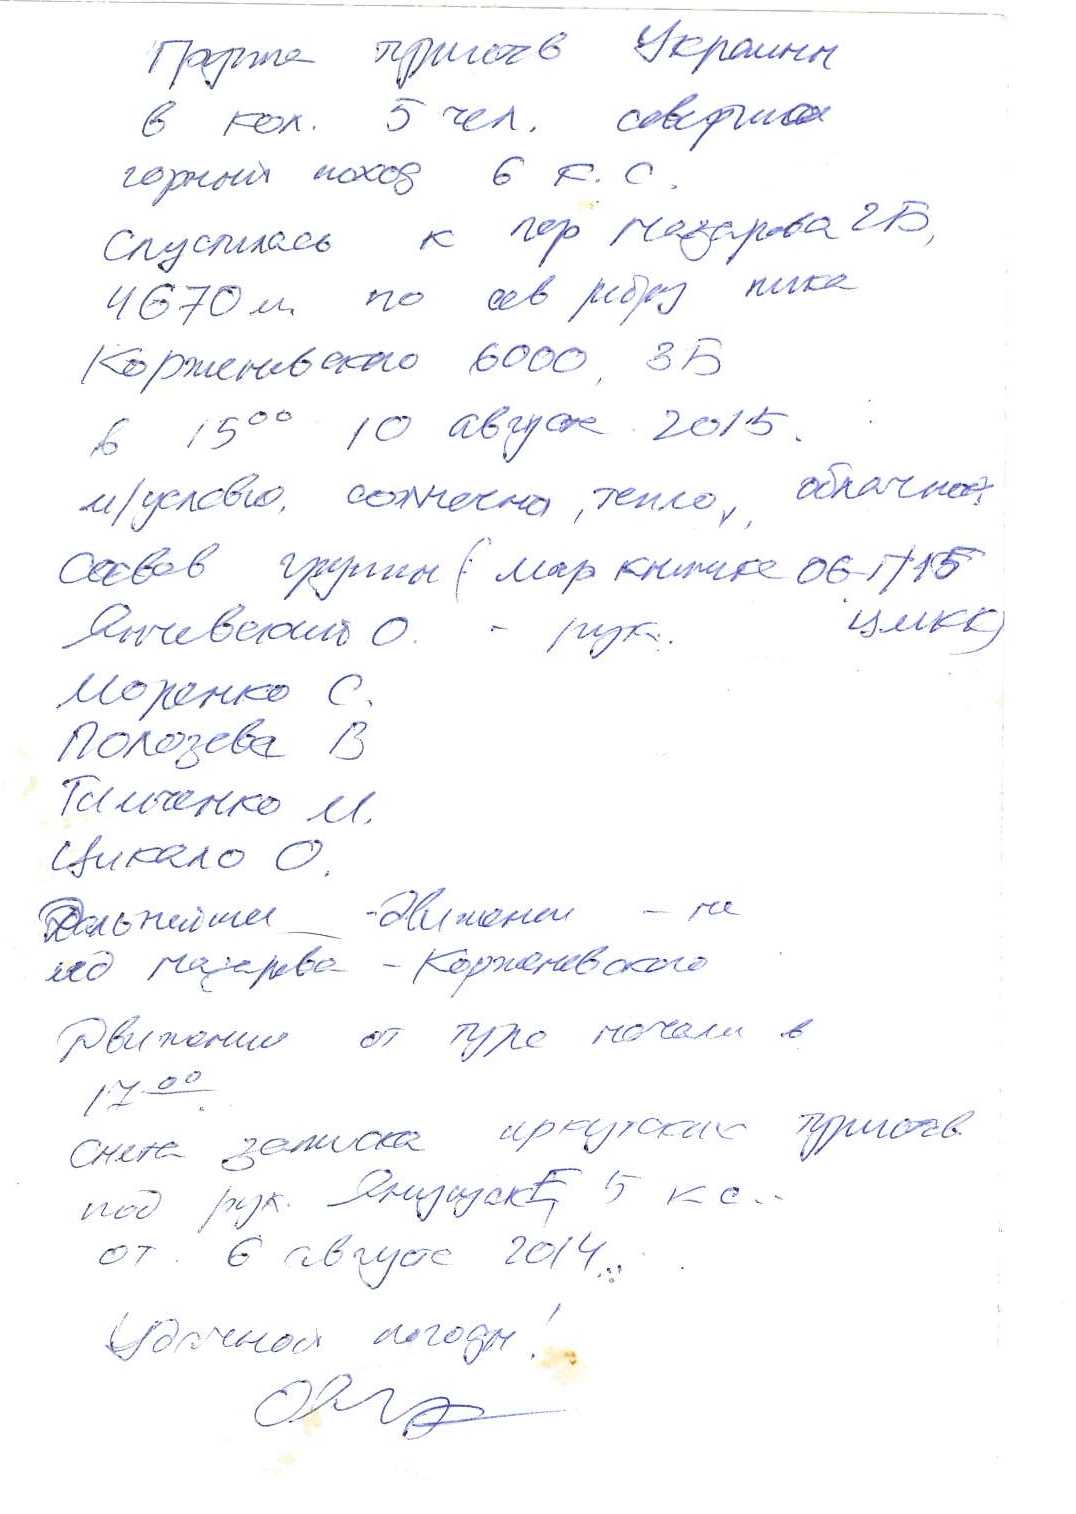 Группа туристов Украины
в кол. 5 чел. совершила
горный поход 6 к.с.
Спустилась к пер Назарова 2Б,
4670 м. по сев ребру пика
Корженевского 6000, 3Б
в 15⁰⁰ 10 августа 2015.
м/условия. солнечно, тепло, облачно
Состав группы (мар книжка 06-1/15
Янчевский О. - рук. ЦМКК)
Моренко С.
Полозева В
Тимченко М.
Цикало О.
Дальнейшее движение - на
лед Назарова - Корженевского
Движение от тура начали в
17⁰⁰.
Снята записка иркутских туристов
под рук. 5 к с.
от 6 августа 2014.
Удачной погоды!